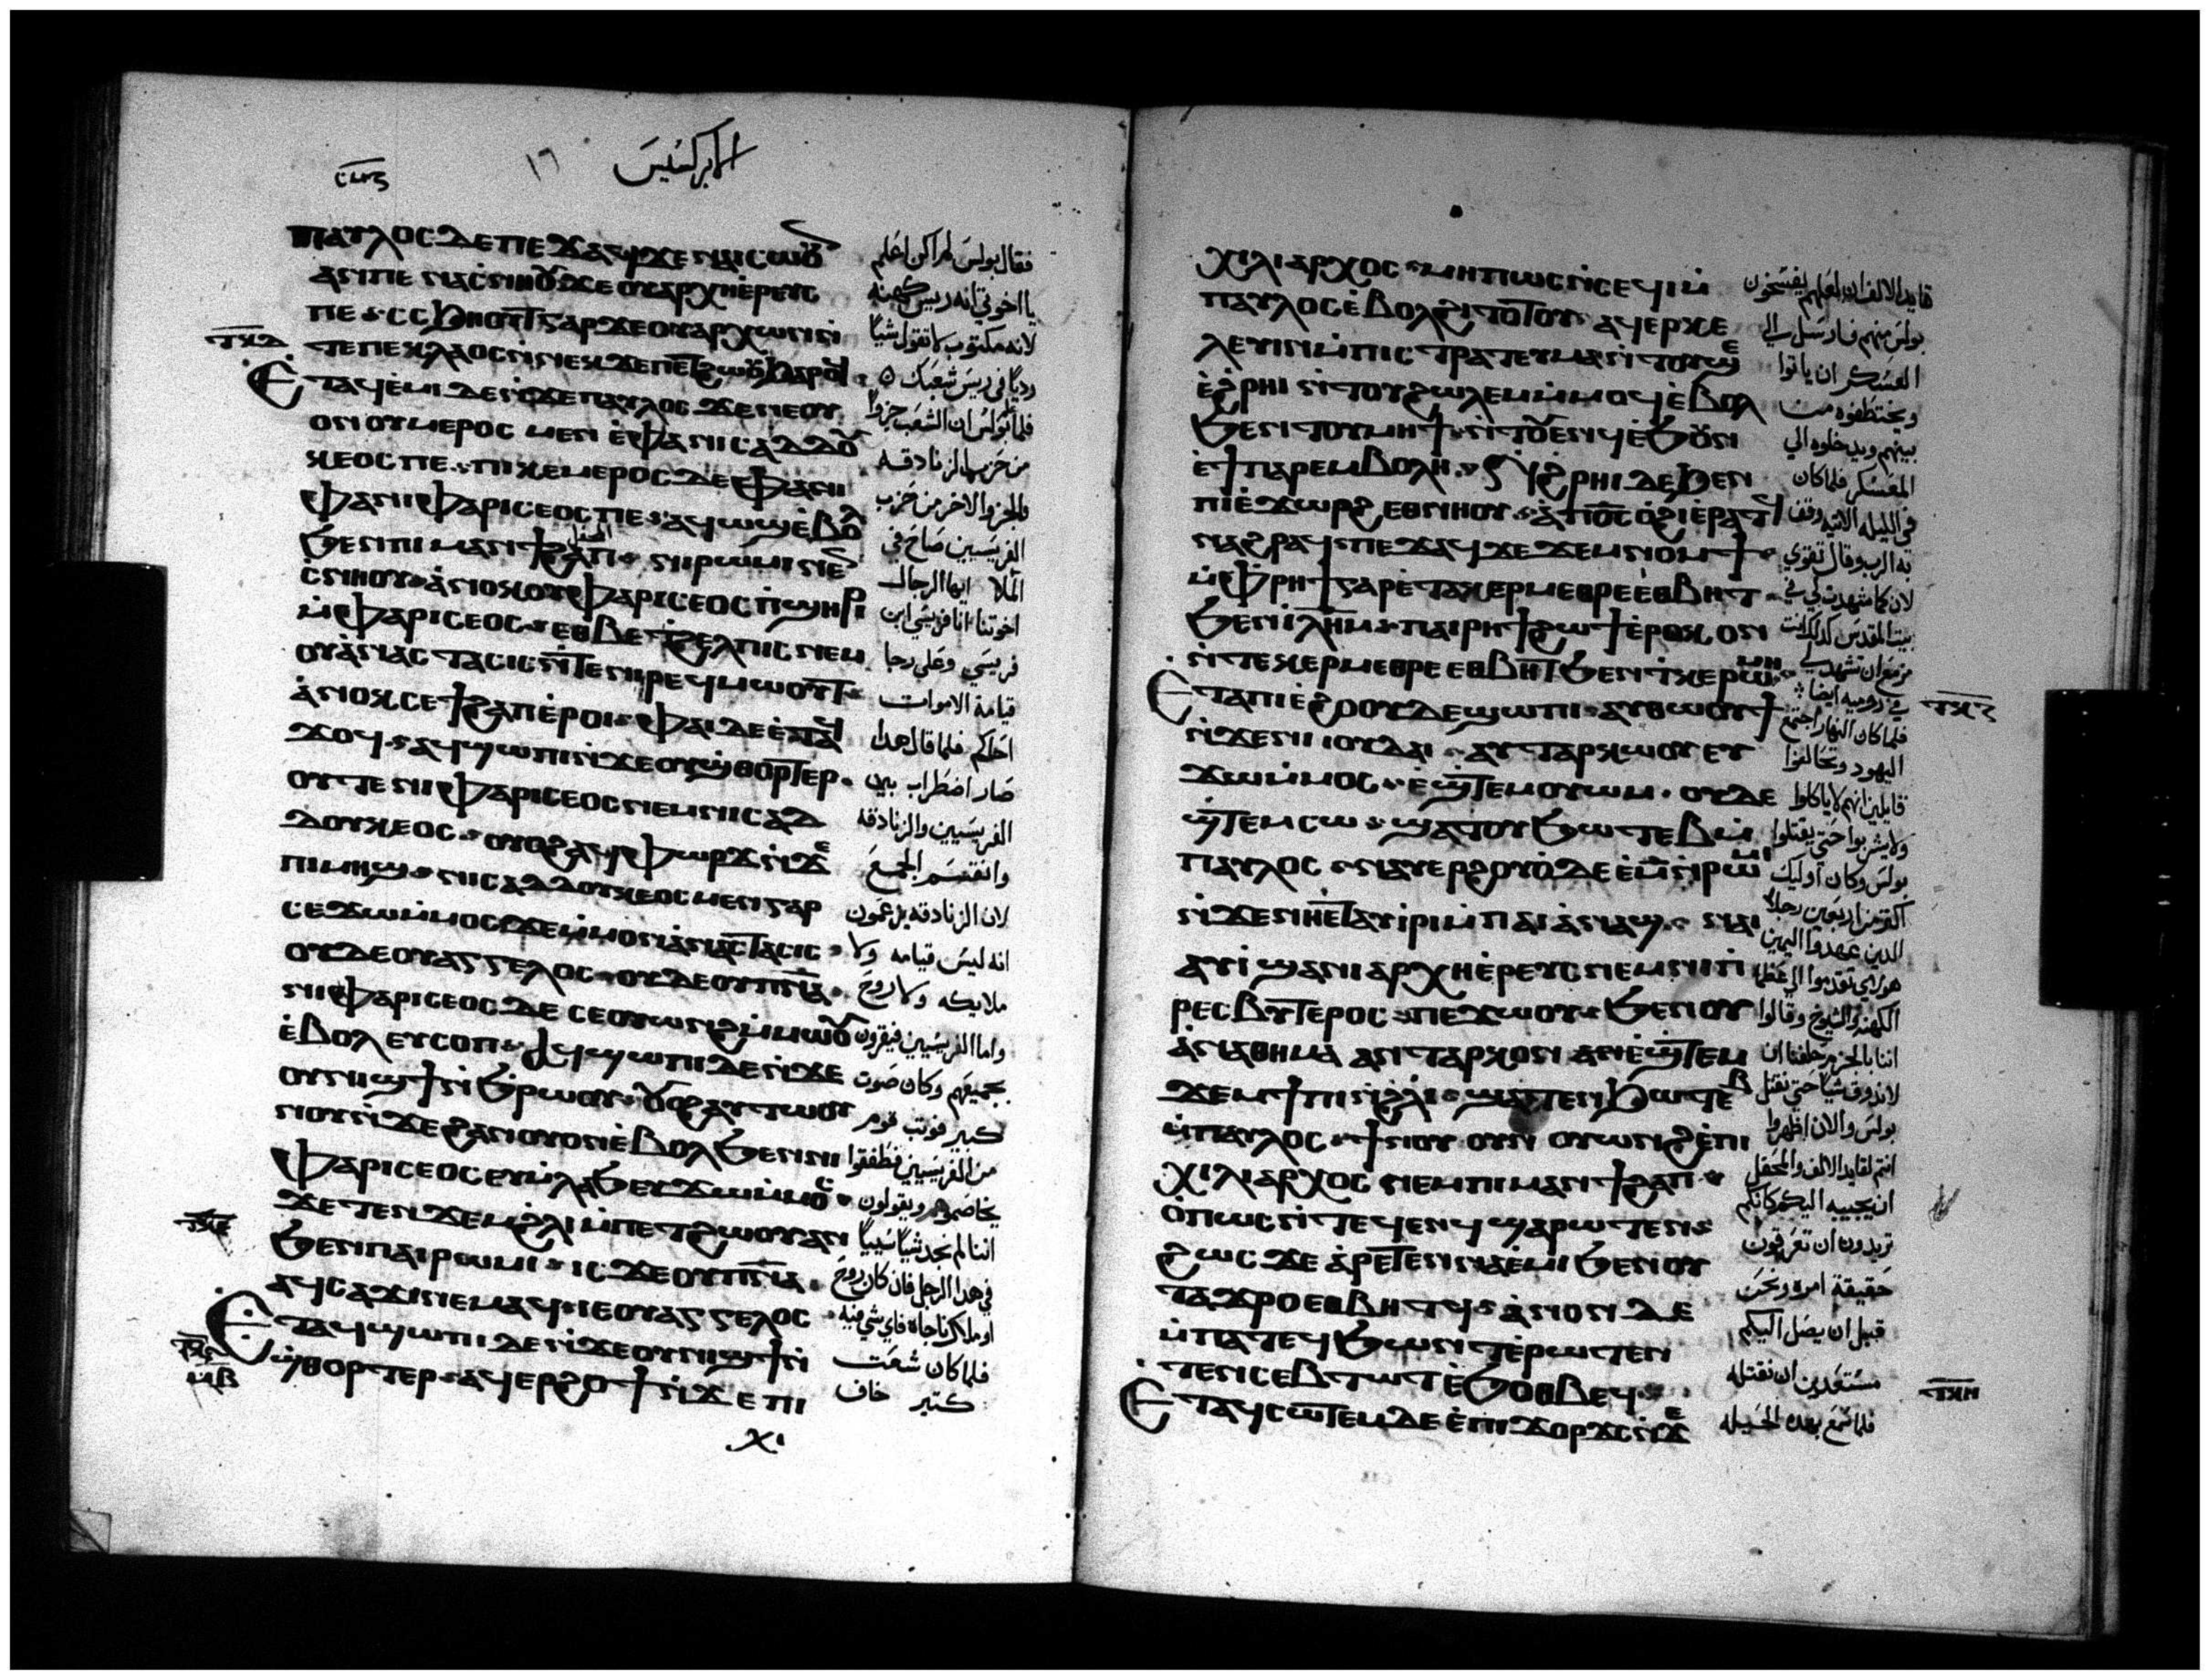 الابركسيس
ⲡⲁⲩⲗⲟⲥ ⲇⲉ ⲡⲉϫⲁϥ ϫⲉ ⲛⲁⲓⲥⲱⲟⲩ
ⲁⲛ ⲡⲉ ⲛⲁⲥⲛⲏⲟⲩ ϫⲉ ⲟⲩⲁⲣⲭⲏⲉⲣⲉⲩⲥ
ⲡⲉ ⲥⲥϧⲏⲟⲩⲧ ⲅⲁⲣ ϫⲉ ⲟⲩⲁⲣⲭⲱⲛ ⲛ̀
ⲧⲉ ⲡⲉⲕⲗⲁⲟⲥ ⲛ̀ⲛⲉⲕϫⲉ ⲡⲉⲧϩⲱⲟⲩ ϧⲁⲣⲟϥ
ⲧⲕⲇ
Ⲉⲧⲁϥⲉⲙⲓ ⲇⲉ ⲛ̀ϫⲉ ⲡⲁⲩⲗⲟⲥ ϫⲉ ⲛⲉ ⲟⲩ
ⲟⲛ ⲟⲩⲙⲉⲣⲟⲥ ⲙⲉⲛ ⲉ̀ⲫⲁ ⲛⲓⲥⲁⲇⲇⲟⲩ
ⲕⲉⲟⲥ ⲡⲉ ⲡⲓⲕⲉⲙⲉⲣⲟⲥ ⲇⲉ ⲫⲁ ⲛⲓ
ⲫⲁ ⲛⲓⲫⲁⲣⲓⲥⲉⲟⲥ ⲡⲉ ⲁϥⲱϣ ⲉ̀ⲃⲟⲗ
ϧⲉⲛ ⲡⲓⲙⲁⲛϯϩⲁⲡ ⲛⲓⲣⲱⲙⲓ ⲛⲉⲛ
ⲥⲛⲏⲟⲩ ⲁ̀ⲛⲟⲕ ⲟⲩⲫⲁⲣⲓⲥⲉⲟⲥ ⲡ̀ϣⲏⲣⲓ
ⲙ̀ⲫⲁⲣⲓⲥⲉⲟⲥ ⲉⲑⲃⲉ ϯϩⲉⲗⲡⲓⲥ ⲛⲉⲙ
ⲟⲩⲁ̀ⲛⲁⲥⲧⲁⲥⲓⲥ ⲛ̀ⲧⲉ ⲛⲓⲣⲉϥⲙⲱⲟⲩⲧ
ⲁ̀ⲛⲟⲕ ⲥⲉϯϩⲁⲡ ⲉ̀ⲣⲟⲓ ⲫⲁⲓ ⲇⲉ ⲉ̀ⲧⲁϥ
ϫⲟϥ ⲁϥϣⲱⲡⲓ ⲛ̀ϫⲉ ⲟⲩϣ̀ⲑⲟⲣⲧⲉⲣ
ⲟⲩⲧⲉ ⲛⲓⲫⲁⲣⲓⲥⲉⲟⲥ ⲛⲉⲙ ⲛⲓⲥⲁⲇ
ⲇⲟⲩⲕⲉⲟⲥ ⲟⲩⲟϩ ⲁϥⲫⲱⲣϫ ⲛ̀ϫⲉ
ⲡⲓⲙⲏϣ ⲛⲓⲥⲁⲇⲇⲟⲩⲕⲉⲟⲥ ⲙⲉⲛ ⲅⲁⲣ
ⲥⲉϫⲱ ⲙ̀ⲙⲟⲥ ϫⲉ ⲙ̀ⲙⲟⲛ ⲁ̀ⲛⲁⲥⲧⲁⲥⲓⲥ
ⲟⲩⲇⲉ ⲟⲩⲁⲅⲅⲉⲗⲟⲥ ⲟⲩⲇⲉ ⲟⲩⲡⲛⲁ
ⲛⲓⲫⲁⲣⲓⲥⲉⲟⲥ ⲇⲉ ⲥⲉⲟⲩⲱⲛϩ ⲙ̀ⲙⲱⲟⲩ
ⲉ̀ⲃⲟⲗ ⲉⲩⲥⲟⲡ ⲁϥϣⲱⲡⲓ ⲇⲉ ⲛ̀ϫⲉ
ⲟⲩⲛⲓϣϯ ⲛ̀ϧⲣⲱⲟⲩ ⲟⲩⲟϩ ⲁⲩⲧⲱⲟⲩ
ⲛⲟⲩ ⲛ̀ϫⲉ ϩⲁⲛⲟⲩⲟⲛ ⲉ̀ⲃⲟⲗ ϧⲉⲛ ⲛⲓ
ⲫⲁⲣⲓⲥⲉⲟⲥ ⲉⲩⲙ̀ⲗⲁϧ ⲉⲩϫⲱ ⲙ̀ⲙⲟⲥ
ϫⲉ ⲧⲉⲛϫⲉⲙ ϩ̀ⲗⲓ ⲙ̀ⲡⲉⲧϩⲱⲟⲩ ⲁⲛ
ⲧⲕⲉ
ϧⲉⲛ ⲡⲁⲓⲣⲱⲙⲓ ⲓⲥ ϫⲉ ⲟⲩⲡⲛⲁ
ⲁϥⲥⲁϫⲓ ⲛⲉⲙⲁϥ ⲓⲉ ⲟⲩⲁⲅⲅⲉⲗⲟⲥ
Ⲉⲧⲁϥϣⲱⲡⲓ ⲇⲉ ⲛ̀ϫⲉ ⲟⲩⲛⲓϣϯ ⲛ̀
ϣ̀ⲑⲟⲣⲧⲉⲣ ⲁϥⲉⲣϩⲟϯ ⲛ̀ϫⲉ ⲡⲓ
ⲙⲃ
ⲭⲓ
فقال بولس لم اكن اعلم
يا اخوتي انه رييس كهنه
لانه مكتوب لا تقول شيًا
رديًا في رييس شعبك
فلما بولس ان الشعب جزوًا
من حزبها الزنادقه
والجزو الاخر من حزب
الفريسيين صاح في
الملا ايها الرجال
اخوتنا انا فريسي ابن
فريسي وعلى رجا
قيامة الاموات
احاكم فلما قال هدا
صار اضطراب بين
الفريسيين والزنادقه
وانقسم الجمع
لان الزنادقه يزعمون
انه ليس قيامه ولا
ملايكه ولا روح
واما الفريسيين فيقرون
بجميعهم وكان صوت
كبير فوتب قوم
من الفريسيين فطفقوا
يخاصموا ويقولون
اننا لم نجد شيًا سييًا
في هدا الرجل فان كان روح
او ملاك ناجاه فاي شي فيه
فلما كان شعت
كتير خاف
ⲭⲓⲗⲓⲁⲣⲭⲟⲥ ⲙⲏⲡⲱⲥ ⲛ̀ⲥⲉϥⲓ ⲙ̀
ⲡⲁⲩⲗⲟⲥ ⲉ̀ⲃⲟⲗϩⲓⲧⲟⲧⲟⲩ ⲁϥⲉⲣⲕⲉ
ⲗⲉⲩⲓⲛ ⲙ̀ⲡⲓⲥⲧⲣⲁⲧⲉⲩⲙⲁ ⲛ̀ⲧⲟⲩϣⲉ
ⲉ̀ϩⲣⲏⲓ ⲛ̀ⲧⲟⲩϩⲱⲗⲉⲙ ⲙ̀ⲙⲟϥ ⲉ̀ⲃⲟⲗ
ϧⲉⲛ ⲧⲟⲩⲙⲏϯ ⲛ̀ⲧⲟⲩⲉⲛϥ ⲉ̀ϧⲟⲩⲛ
ⲉ̀ϯⲡⲁⲣⲉⲙⲃⲟⲗⲏ ⲛ̀ϩⲣⲏⲓ ⲇⲉ ϧⲉⲛ
ⲡⲓⲉ̀ϫⲱⲣϩ ⲉⲑⲛⲏⲟⲩ ⲁ̀ ⲡⲟ̅ⲥ̅ ⲟ̀ϩⲓ ⲉ̀ⲣⲁⲧϥ
ⲛⲁϩⲣⲁϥ ⲡⲉϫⲁϥ ϫⲉ ϫⲉⲙⲛⲟⲙϯ
ⲙ̀ⲫⲣⲏϯ ⲅⲁⲣ ⲉ̀ⲧⲁⲕⲉⲣⲙⲉⲑⲣⲉ ⲉⲑⲃⲏⲧ
ϧⲉⲛ ⲓ̅ⲗ̅ⲏ̅ⲙ̅ ⲡⲁⲓⲣⲏϯ ϩⲱϯ ⲉ̀ⲣⲟⲕ ⲟⲛ
ⲛ̀ⲧⲉⲕⲉⲣⲙⲉⲑⲣⲉ ⲉⲑⲃⲏⲧ ϧⲉⲛ ϯⲕⲉⲣⲱⲙⲏ
Ⲉⲧⲁ ⲡⲓⲉ̀ϩⲟⲟⲩ ⲇⲉ ϣⲱⲡⲓ ⲁⲩⲑⲱⲟⲩϯ
ⲧⲕⲍ
ⲛ̀ϫⲉ ⲛⲓⲓⲟⲩⲇⲁⲓ ⲁⲩⲧⲁⲣⲕⲱⲟⲩ ⲉⲩ
ϫⲱ ⲙ̀ⲙⲟⲥ ⲉ̀ϣⲧⲉⲙⲟⲩⲱⲙ ⲟⲩⲇⲉ
ϣ̀ⲧⲉⲙⲥⲱ ϣⲁⲧⲟⲩϧⲱⲧⲉⲃ ⲙ̀
ⲡⲁⲩⲗⲟⲥ ⲛⲁⲩⲉⲣϩⲟⲩⲟ̀ ⲇⲉ ⲉ̀ⲙ̅ ⲛ̀ⲣⲱⲙⲓ
ⲛ̀ϫⲉ ⲛⲏⲉⲧⲁⲩⲓⲣⲓ ⲙ̀ⲡⲁⲓⲁ̀ⲛⲁϣ ⲛⲁⲓ
ⲁⲩⲓ̀ ϣⲁ ⲛⲓⲁⲣⲭⲏⲉ̀ⲣⲉⲩⲥ ⲛⲉⲙ ⲛⲓⲡ̀
ⲣⲉⲥⲃⲩⲧⲉⲣⲟⲥ ⲡⲉϫⲱⲟⲩ ϧⲉⲛ ⲟⲩ
ⲁ̀ⲛⲁⲑⲏⲙⲁ ⲁⲛⲧⲁⲣⲕⲟⲛ ⲁⲛⲉ̀ϣ̀ⲧⲉⲙ
ϫⲉⲙϯⲡⲓ ⲛ̀ϩ̀ⲗⲓ ϣⲁⲧⲉⲛϧⲱⲧⲉⲃ
ⲙ̀ⲡⲁⲩⲗⲟⲥ ϯⲛⲟⲩ ⲟⲩⲛ ⲟⲩⲱⲛϩ ⲉ̀ⲡⲓ
ⲭⲓⲗⲓⲁⲣⲭⲟⲥ ⲛⲉⲙ ⲡⲓⲙⲁⲛϯϩⲁⲡ
ⲟ̀ⲡⲱⲥ ⲛ̀ⲧⲉϥⲉⲛϥ ϣⲁⲣⲱⲧⲉⲛ
ϩⲱⲥ ϫⲉ ⲁ̀ⲣⲉⲧⲉⲛⲛⲁⲉ̀ⲙⲓ ϧⲉⲛ ⲟⲩ
ⲧⲁϫⲣⲟ ⲉⲑⲃⲏⲧϥ ⲁ̀ⲛⲟⲛ ⲇⲉ
ⲙ̀ⲡⲁⲧⲉϥϧⲱⲛⲧ ⲉ̀ⲣⲱⲧⲉⲛ
ⲧⲉⲛⲥⲉⲃⲧⲱⲧ ⲉ̀ϧⲟⲑⲃⲉϥ
Ⲉⲧⲁϥⲥⲱⲧⲉⲙ ⲇⲉ ⲉ̀ⲡⲓϫⲟⲣϫⲥ ⲛ̀ϫⲉ
ⲧⲕⲏ
قايد الالف ان لعلهم يفسخون
بولس منهم فارسل الي
العسكر ان ياتوا
ويختطفوه من
بينهم ويدخلوه الي
المعسكر فلما كان
في الليله الاتيه وقف
به الرب وقال تقوي
لان كما شهدت لي في
بيت المقدس كدلك انت
مزمع ان تشهد لي
في روميه ايضًا
فلما كان النهار اجتمع
اليهود وتحالفوا
قايلين انهم لا ياكلوا
ولا يشربوا حتى يقتلوا
بولس وكان اوليك
اكثر من اربعين رجلا
الدين عهدوا اليمين
هولاي تقدموا الى عظما
الكهنه والشيوخ وقالوا
اننا بالحرم حلفنا ان
لا ندوق شيًا حتى نقتل
بولس والان اظهروا
انتم لقايد الالف والمحفل
ان يجيبه اليكم كانكم
تريدون ان تعرفون
حقيقة امره ونحن
قبل ان يصل اليكم
مستعدين ان نقتله
فلما سمع بهده الحيله